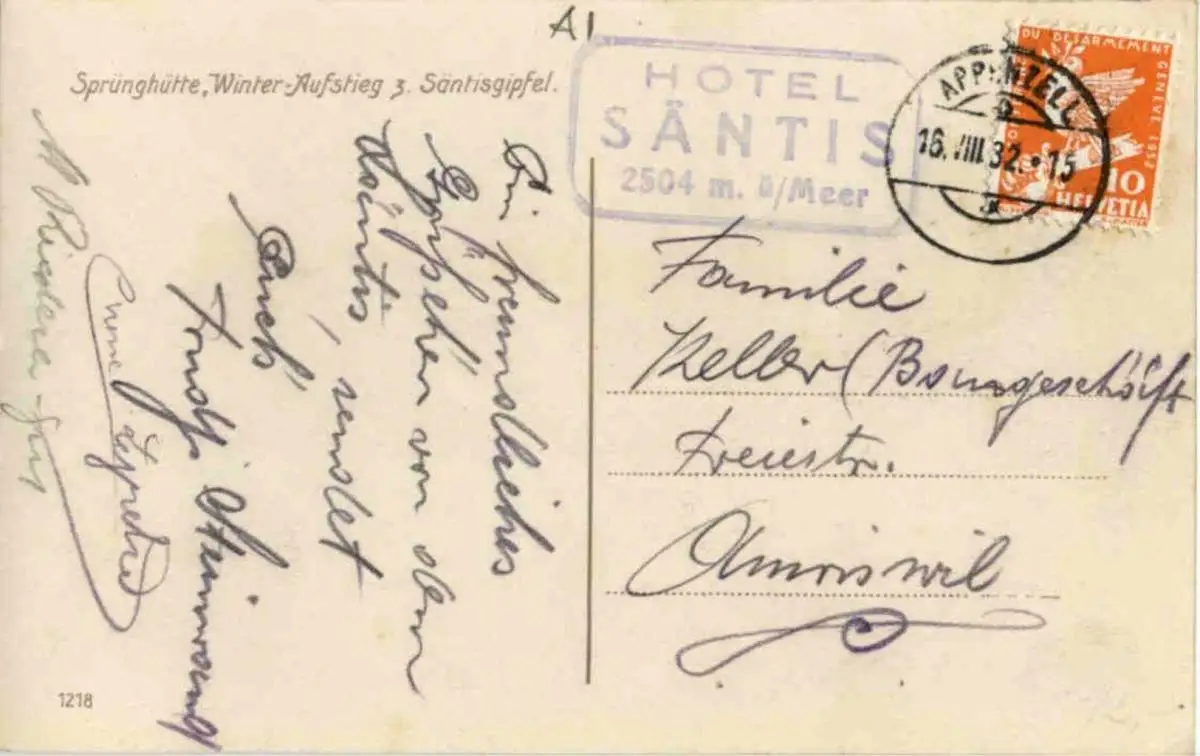 A I
Sprünghütte, Winter-Aufstieg z. Säntisgipfel.
HOTEL
SÄNTIS
2504 m. ü/Meer
APPENZELL
16.VIII.32.•15
DU DÉSARMEMENT
GENÈVE 1932
10
HELVETIA
Ein freundliches
Grüsschen von dem
Säntis, sendet
Euch
Familie
Keller (Baugeschäft
Freiestr.
Amriswil
1218